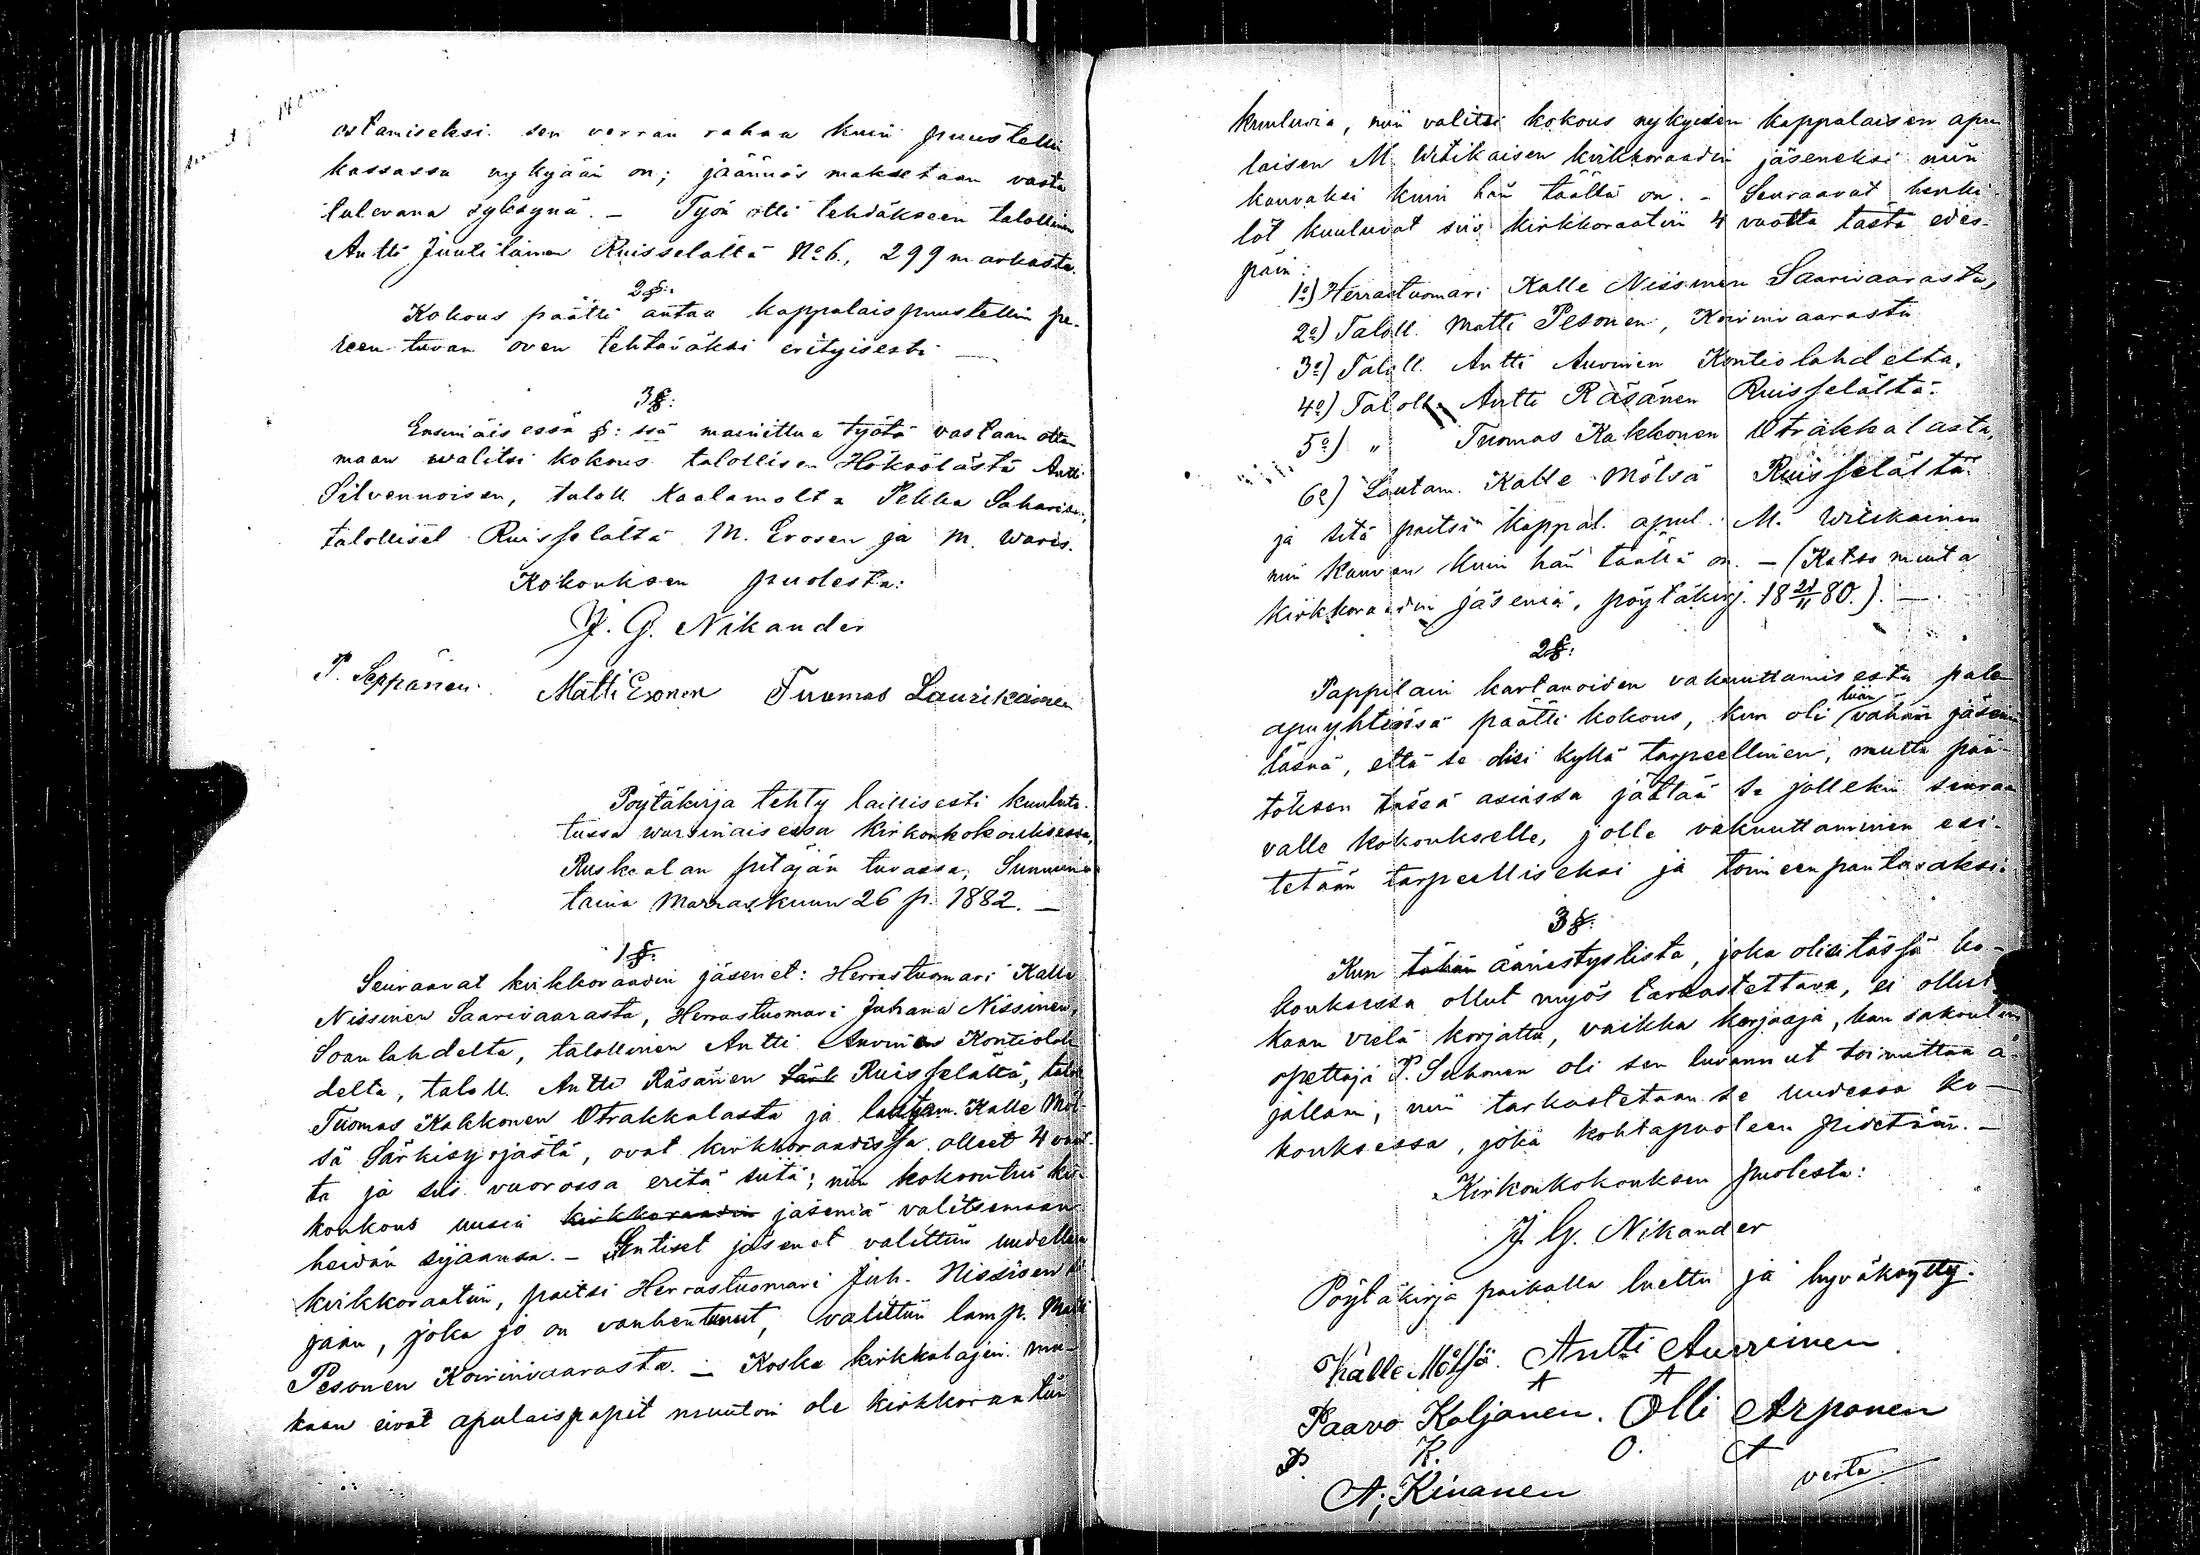 ostamiseksi sen verran rahaa kuin puustellin
kassassa nykyään on; jäännös maksetaan vasta
tulevana syksynä. – Työn otti tehdäkseen talollinen
Antti Juutilainen Ruisselältä No 6., 299 markasta.
2§:
Kokous päätti antaa kappalaispuustellin pe-
reen tuvan oven tehtäväksi erityisesti —
3§:
Ensimäisessä §:ssä mainittua työtä vastaan otta-
maan walitsi kokous talollisen Höksölästä Antti
Silvennoisen, taloll. Kaalamolta Pekka Saharisen,
talolliset Ruisselältä M. Erosen ja M. Waris.
Kokouksen puolesta:
J. G. Nikander
P. Seppänen. Matti Eronen Tuomas Laurikainen
Pöytäkirja tehty laillisesti kuulute-
tussa warsinaisessa kirkonkokouksessa,
Ruskealan pitäjän tuvassa, Sunnun-
taina Marraskuun 26 p. 1882. —
1§:
Seuraavat kirkkoraadin jäsenet: Herrastuomari Kalle
Nissinen Saarivaarasta, Herrastuomari Juhana Nissinen,
Soanlahdelta, talollinen Antti Auvinen Kontiolah-
delta, taloll. Antti Räsänen Särk Ruisselältä, talol.
Tuomas Kakkonen Otrakkalasta ja lautam. Kalle Möl-
sä Särkisyrjästä, ovat kirkkoraadissa olleet 4 vuot-
ta ja siis vuorossa eritä siitä; niin kokoontui kir-
konkous uusia kirkkoraadin jäseniä valitsemaan
heidän sijaansa. – Entiset jäsenet valittiin uudellen
kirkkoraatiin, paitsi Herrastuomari Juh. Nissisen si-
jaan, joka jo on vanhentunut, valittiin lamp. Matti
Pesonen Koirinvaarasta. – Koska kirkkolajin mu-
kaan eivät apulaispapit muutoin ole kirkkoraatiin
kuuluvia, niin valitsi kokous nykyisen kappalaisen apu-
laisen M. Witikaisen kirkkoraadin jäseneksi niin
kauvaksi kuin hän täällä on. – Seuraavat henki-
löt kuuluvat siis kirkkoraatiin 4 vuotta tästä edes-
päin:
1o) Herrastuomari Kalle Nissinen Saarivaarasta,
2o) Taloll. Matti Pesonen, Koirinvaarasta
3o) Taloll. Antti Auvinen Kontiolahdelta.
4o) Taloll. Antti Räsänen Ruisselältä.
5o) „ Tuomas Kakkonen Otrakkalasta,
6o) Lautam. Kalle Mölsä Ruisselältä.
ja sitä paitsi kappal. apul. M. Witikainen
niin kauvan kuin hän täällä on. – (Katso muita
kirkkoraadin jäseniä, pöytäkirj. 18 21/11 80.). —
2§:
Pappilain kartanoiden vakuuttamisesta palo-
apuyhtiössä päätti kokous, kun oli liian vähän jäseniä
läsnä, että se olisi kyllä tarpeellinen, mutta pää-
töksen tässä asiassa jättää se jollekin seuraa-
valle kokoukselle, jolle vakuuttaminen esi-
tetään tarpeelliseksi ja toimeenpantavaksi.
3§:
Kun tähän äänestyslista, joka olisi tässä ko-
kouksessa ollut myös tarkastettava, ei ollut
kaan vielä korjattu, vaikka korjaaja, kansakoulun
opettaja P. Suhonen oli sen luvannut toimittaa a-
jallani, niin tarkastetaan se uudessa ko-
kouksessa, joka kohtapuoleen pidetään. —
Kirkonkokouksen puolesta:
J. G. Nikander
Pöytäkirja paikalla luettu ja hyväksytty.
Kalle Mölsä. Antti Auvinen
A A
Paavo Koljonen. Olli Arponen
P. K. O. A
A; Kinanen
verta